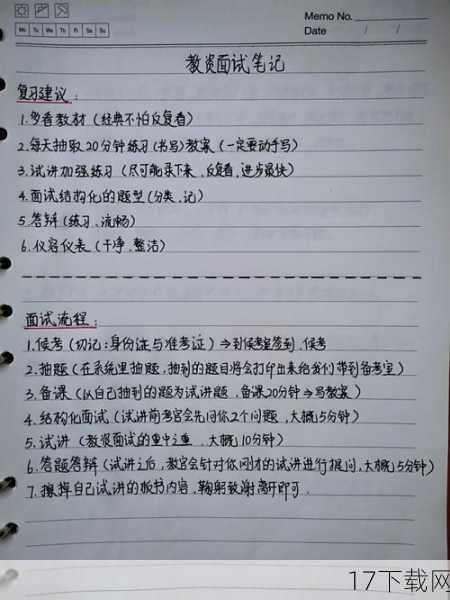 Memo No.
Mo Tu We Th Fr Sa Su
Date / /
教资面试笔记
复习建议：
1.多看教材（经典不怕反复看）
2.每天抽取20分钟练习(书写)教案（一定要动手写）
3.试讲加强练习（尽可能录下来、反复看,进步最快）
4.面试结构化的题型（分类、记）
5.答辩（练习、流畅）
6.仪容仪表（干净、整洁）
面试流程：
1.候考（切记：身份证与准考证）⇒到候考室签到、候考
2.抽题（在系统里抽题,抽到的题目将会打印出来给我们带到备考室）
3.备课（以自己抽到的题为试讲题、备课20分钟⇒写教案）
4.结构化面试（试讲前考官会先问你2个问题、大概5分钟）
5.试讲（教资面试的重中之重、大概10分钟）
6.答题答辩（试讲之后,教官会针对你刚才的试讲进行提问,大概5分钟）
7.擦掉自己试讲的板书内容、鞠躬致谢离开即可.
17下载网